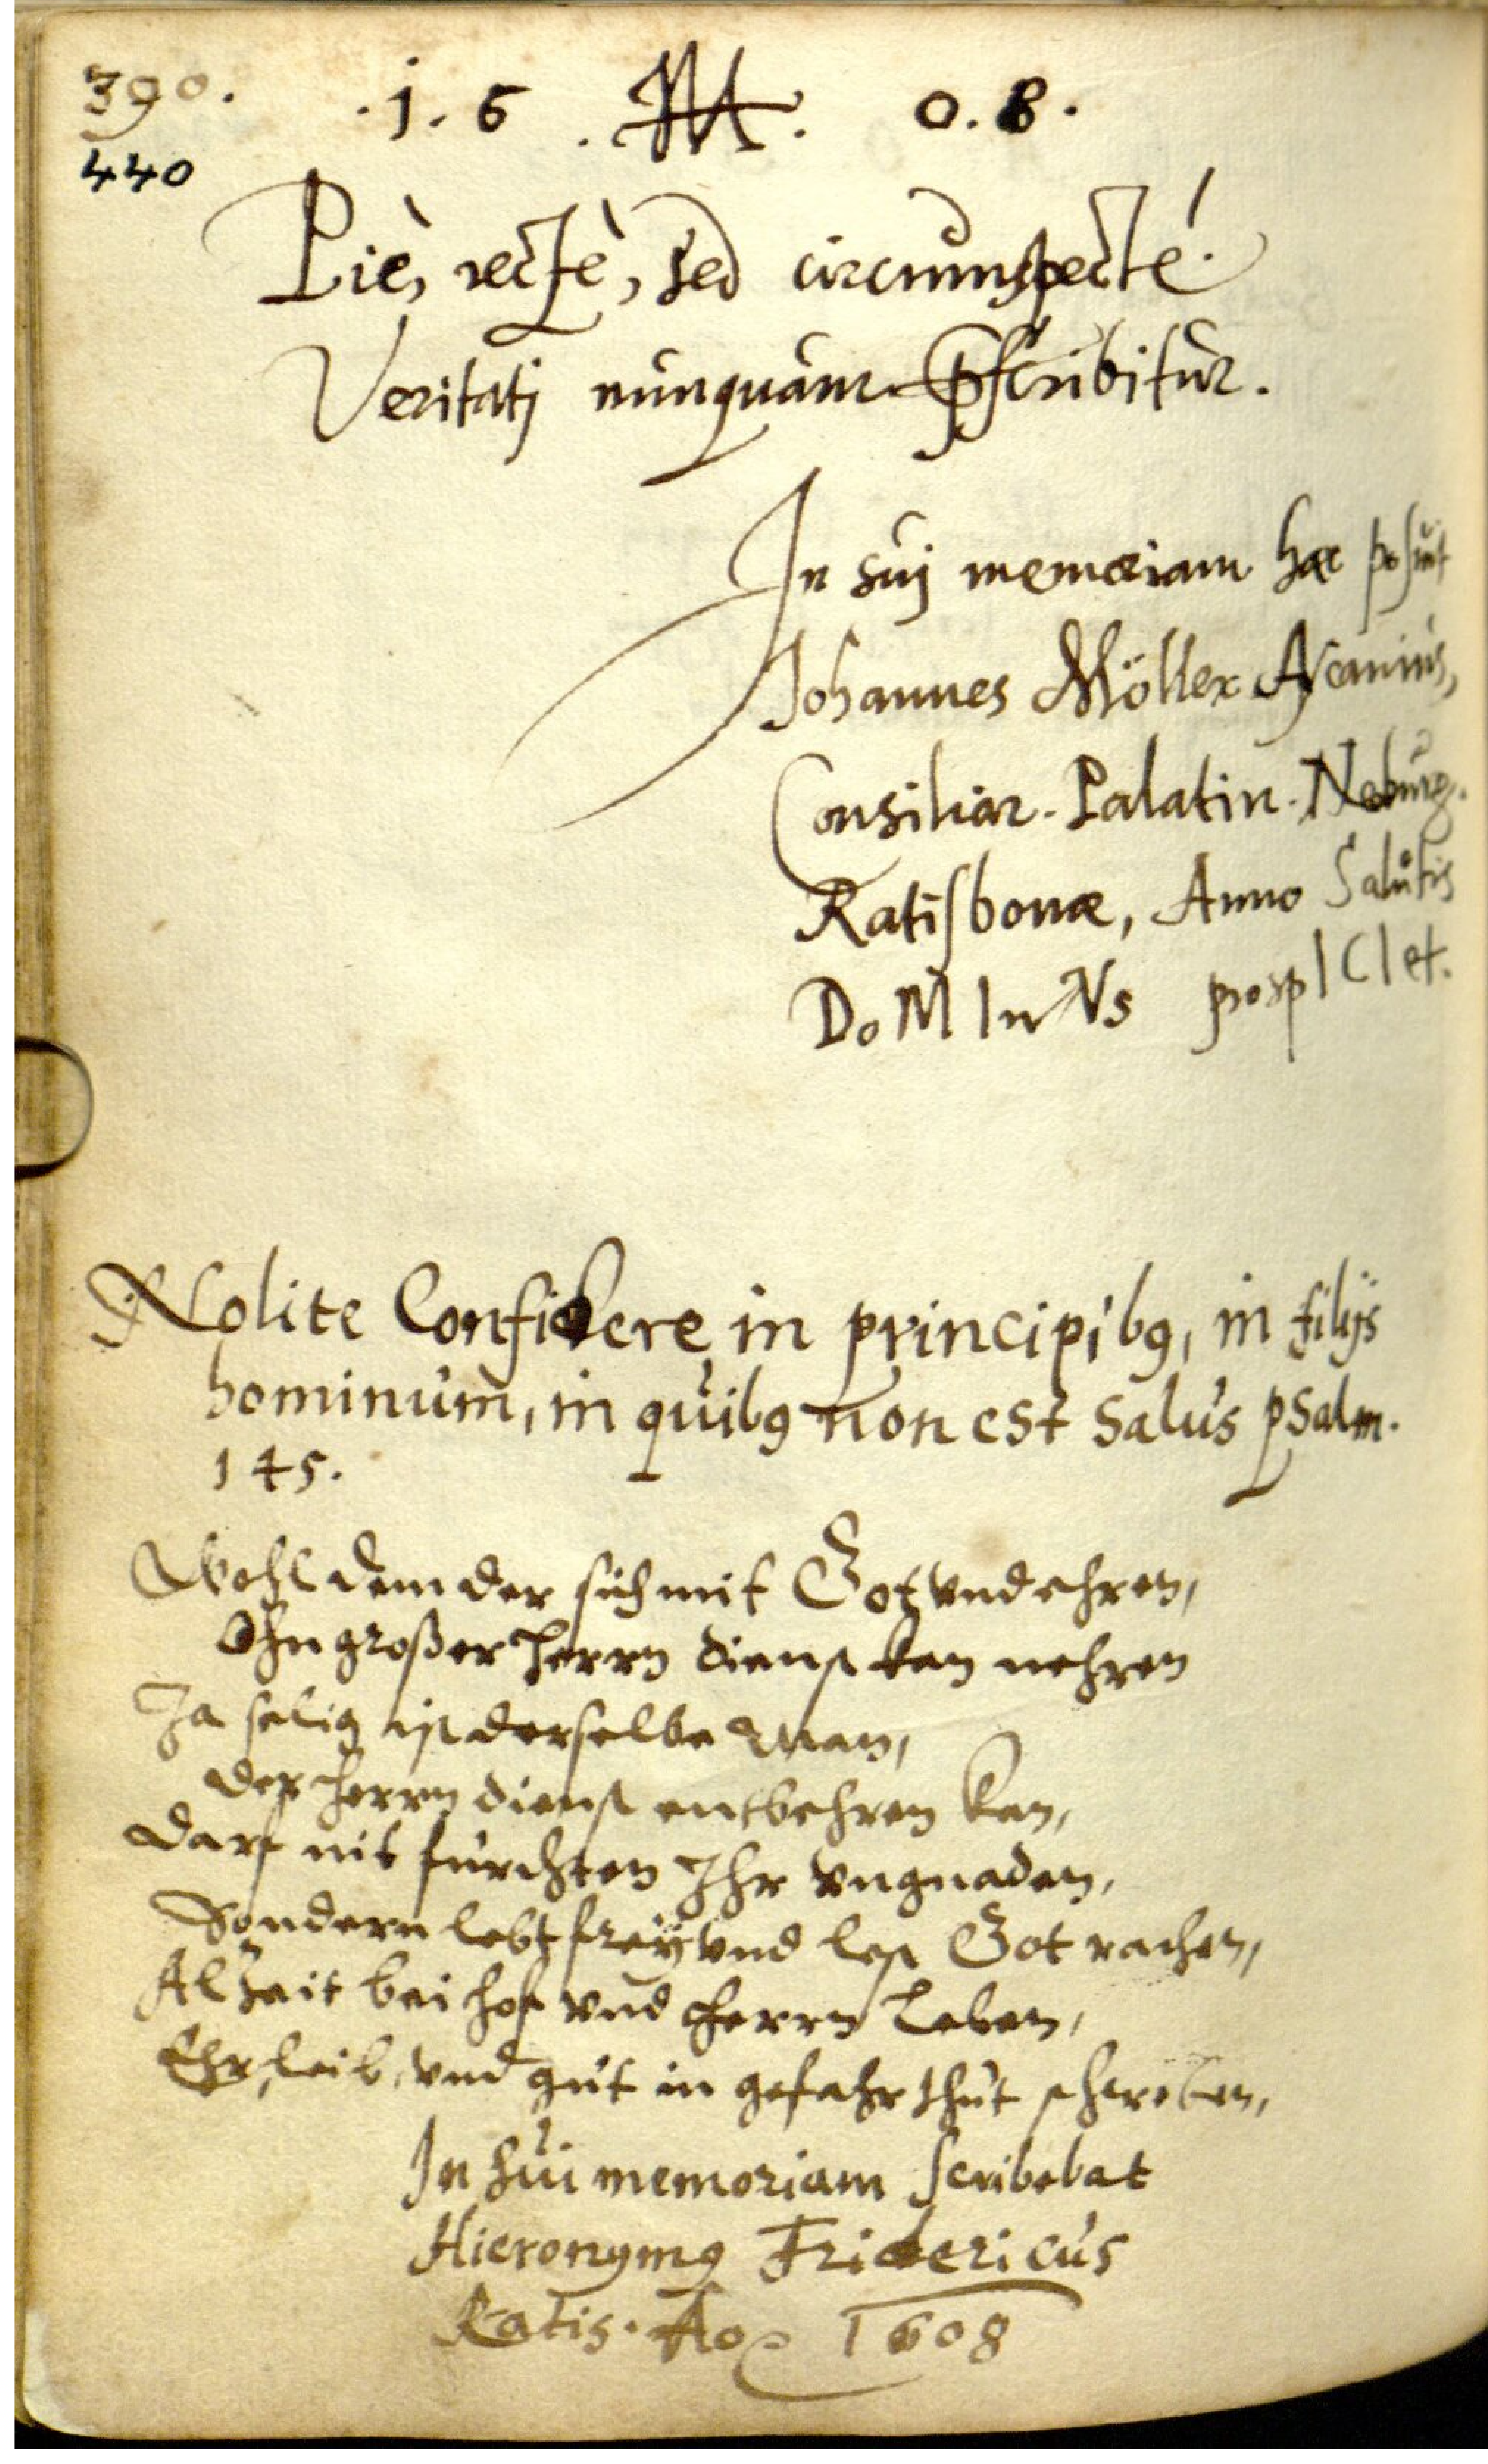 390.
440
. 1. 6 . M . 0. 8 .
Piè, rectè, sed circumspectè.
Veritatj nunquam pscribitur.
In suj memoriam hæc posuit
Johannes Möller Ascanius,
Consiliar. Palatin. Neburg.
Ratisbonæ, Anno Salutis
DoMInVs prospICIet.
Nolite Confidere in principibꝰ, in filijs
hominum, in quibꝰ non est salus psalm.
145.
Wohl dem der sich mit Got vnd ehren,
Ohn großer Herrn dienst kan nehren
Ja selig ist derselbe Man,
der herrn dienst entbehren kan,
darf nit fürchten Ihr vngnaden,
Sondern lebt freÿ vnd lest Got rathen,
Alzeit bei hof vnd herrn Leben,
Ehr, leib, vnd gut in gefahr thut schweben,
In sui memoriam scribebat
Hieronymꝰ Fridericus
Ratis. Ao 1608